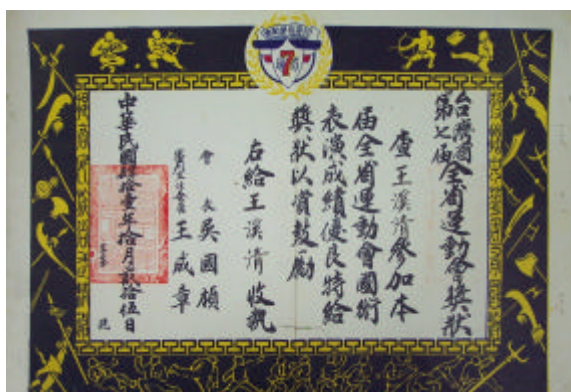 台灣省
第七屆全省運動會獎狀
查王溪清參加本
屆全省運動會國術
表演成績優良特給
獎狀以資鼓勵
右給王溪清收執
會長吳國禎
王成章
中華民國肆拾壹年拾月貳拾伍日
7